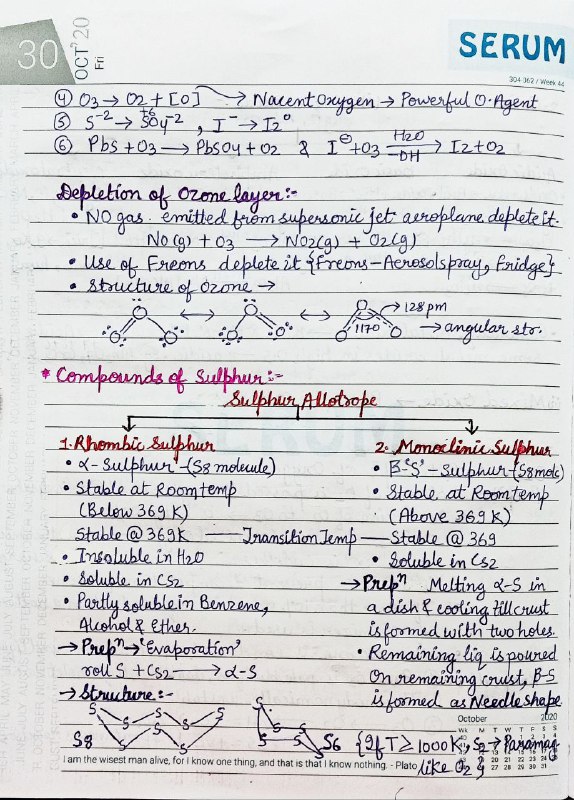 30 OCT'20 Fri
SERUM
304-062 / Week 44
④ O3 → O2 + [O] → Nacent Oxygen → Powerful O. Agent
⑤ S⁻² → S⁺⁶O4⁻², I⁻ → I2⁰
⑥ PbS + O3 → PbSO4 + O2 & I⊖ + O3 H2O → -OH I2 + O2
Depletion of Ozone layer:-
• NO gas. emitted from supersonic jet aeroplane deplete it.
NO(g) + O3 → NO2(g) + O2(g)
• Use of Freons deplete it {Freons - Aerosolspray, Fridge}
• Structure of Ozone →
O O O ↔ O O O ↔ O O O 117⁰ → 128 pm → angular str.
* Compounds of Sulphur:-
Sulphur Allotrope
1. Rhombic Sulphur
• α- Sulphur - (S8 molecule)
• Stable at Room temp
(Below 369 K)
Stable @ 369K — Transition Temp — Stable @ 369
• Insoluble in H2O
• Soluble in CS2
• Partly soluble in Benzene,
Alcohol & Ether.
→ Prepⁿ → 'Evaporation'
roll S + CS2 → α-S
→ Structure:-
S S S S S S S S
S8
S S S S S6
2. Monoclinic Sulphur
• B-'S' - Sulphur - (S8 mole)
• Stable at Room temp
(Above 369 K)
• Soluble in CS2
→ Prepⁿ Melting α-S in
a dish & cooling till crust
is formed with two holes.
• Remaining liq is poured
On remaining crust, B-S
is formed as Needle shape
{If T ≥ 1000 K, S2 → Paramag.
like O2}
October 2020
Wk M T W T F S S
I am the wisest man alive, for I know one thing, and that is that I know nothing. - Plato